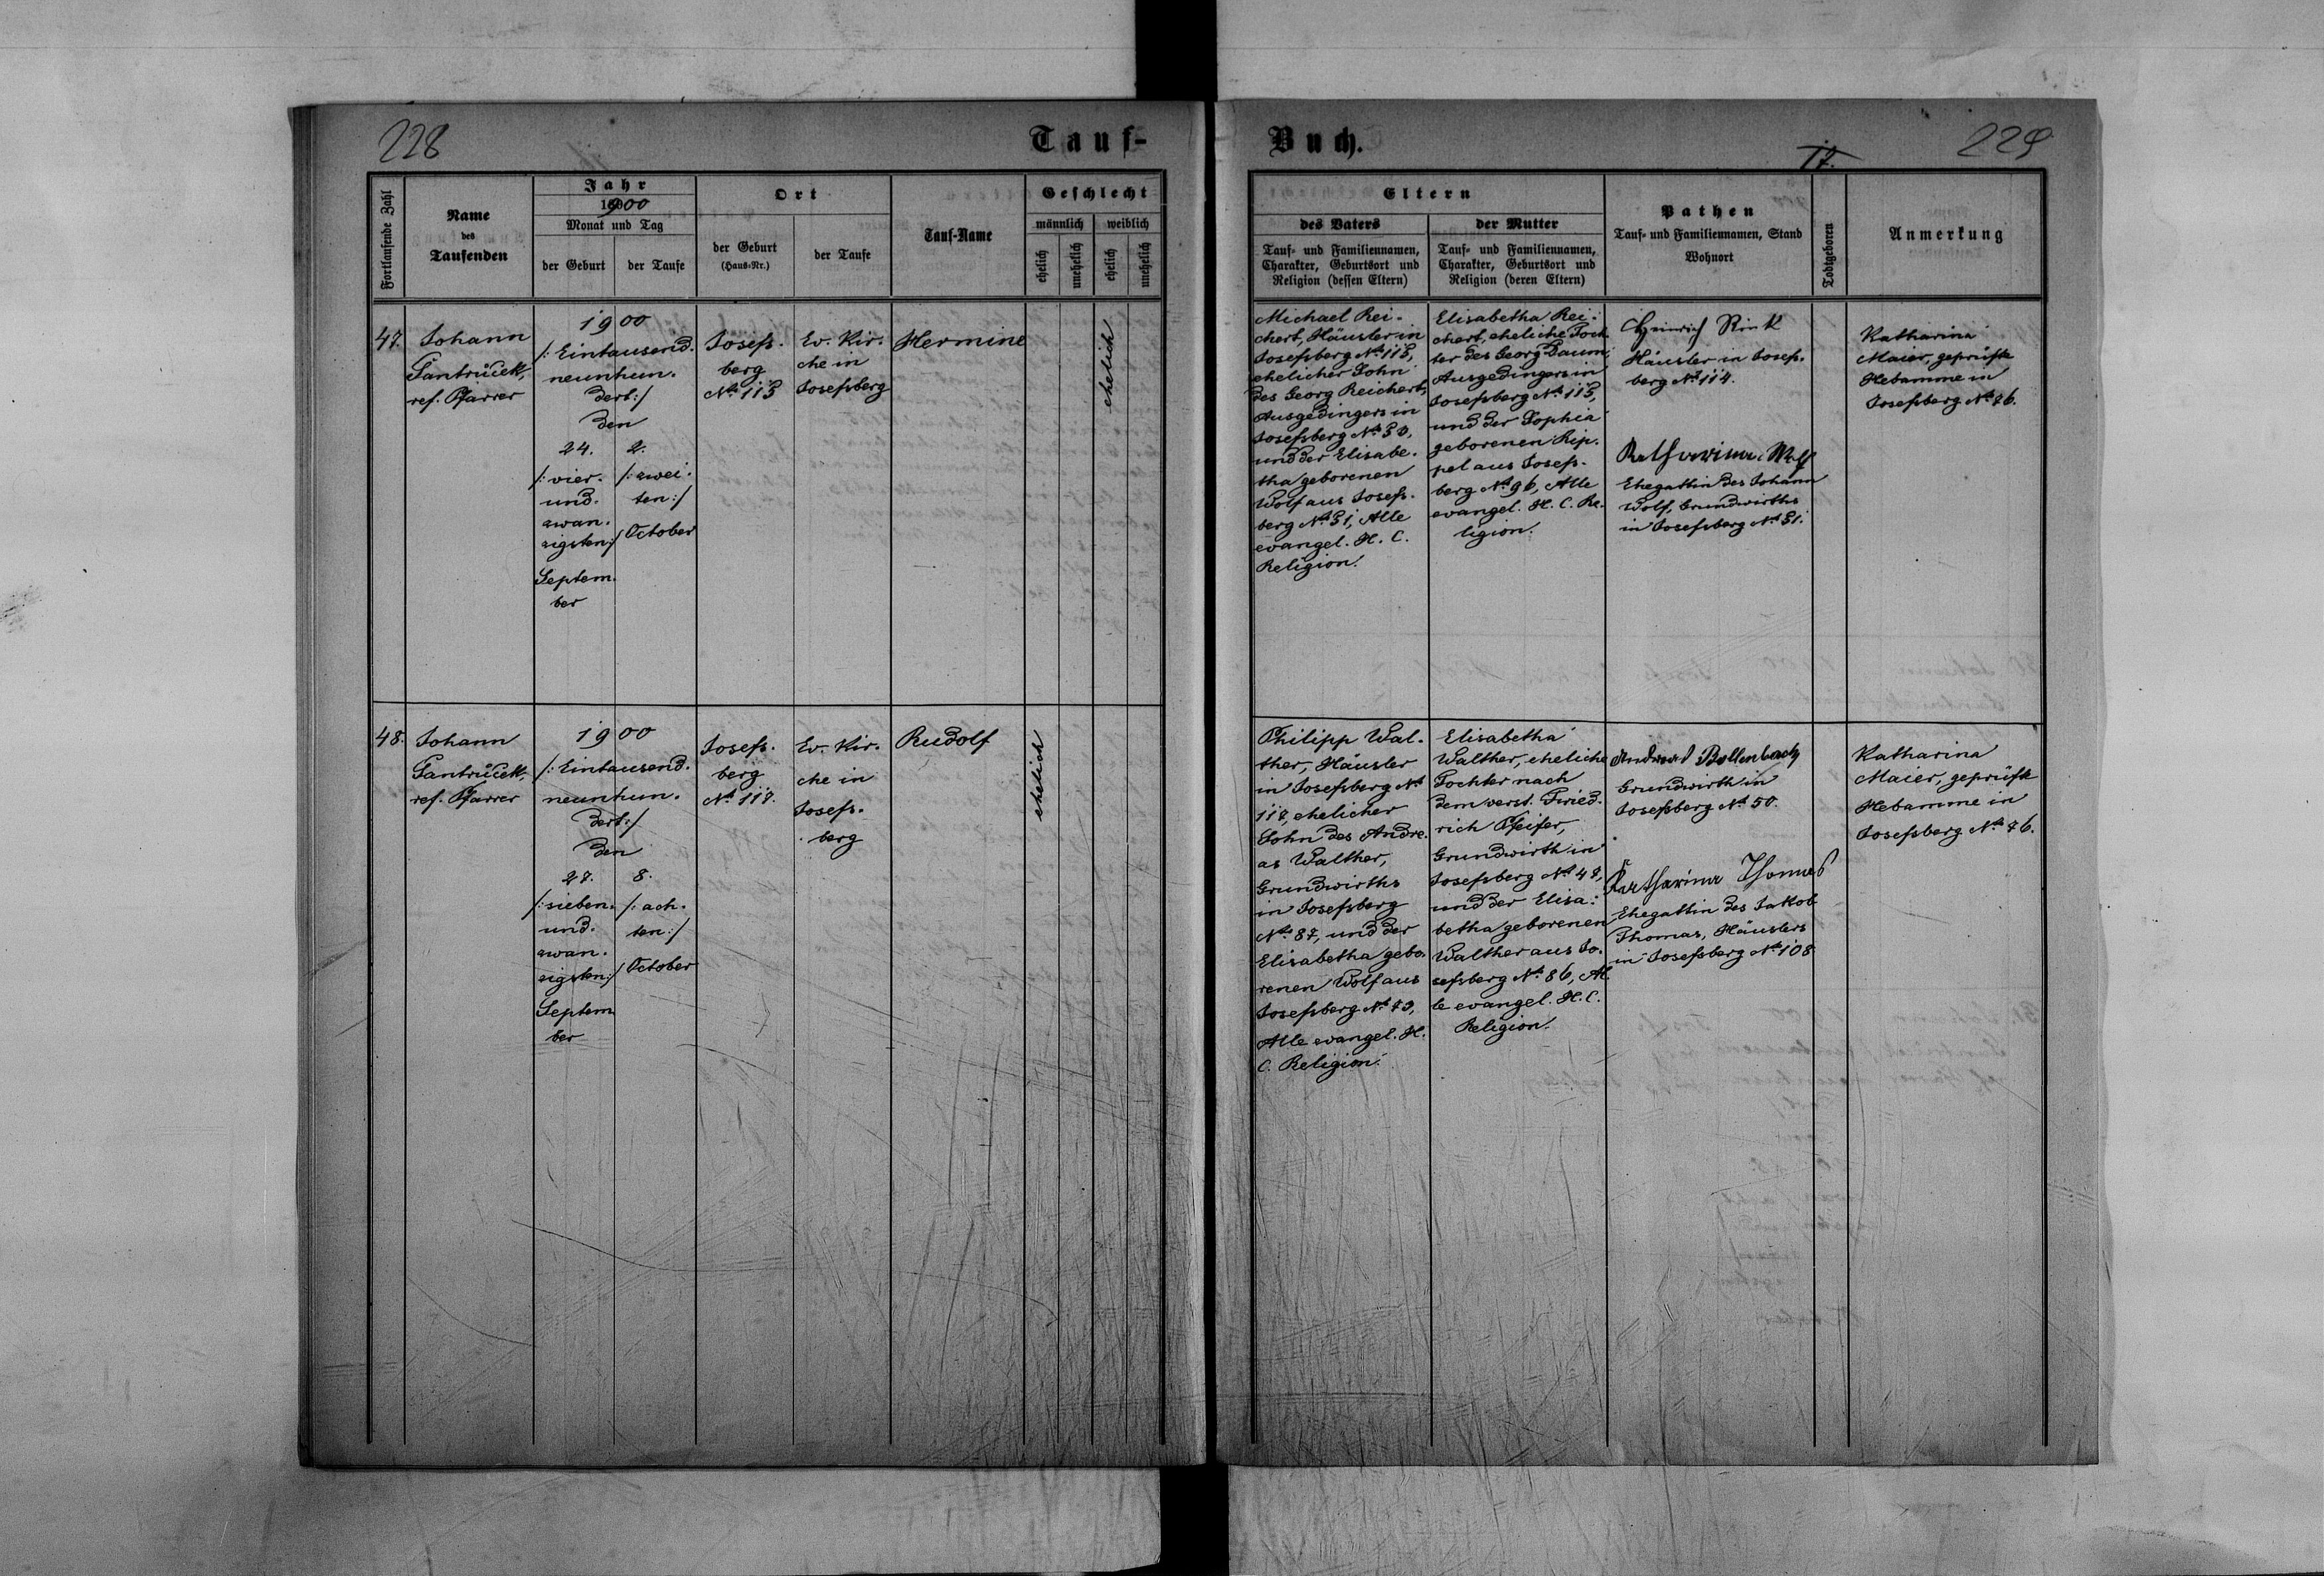 228
Tauf-
Fortlaufende Zahl
Name
des
Taufenden
Jahr
1900
Monat und Tag
der Geburt
der Taufe
Ort
der Geburt
(Haus-Nr.)
der Taufe
Tauf-Name
Geschlecht
männlich
weiblich
ehelich
unehelich
ehelich
unehelich
47.
Johann
Jantruček,
ref. Pfarrer
1900
/: Eintausend-
neunhun-
dert :/
den
24.
/: vier-
und-
zwan-
zigsten :/
Septem-
ber
2.
/: zwei-
ten :/
October
Josefs-
berg
No 113
Ev. Kir-
che in
Josefsberg
Hermine
ehelich
48.
Johann
Jantruček,
ref. Pfarrer
1900
/: Eintausend-
neunhun-
dert :/
den
27.
/: sieben-
und-
zwan-
zigsten :/
Septem-
ber
8.
/: ach-
ten :/
October
Josefs-
berg
No 117.
Ev. Kir-
che in
Josefs-
berg
Rudolf
ehelich
Buch.
229
Eltern
des Vaters
Tauf- und Familiennamen,
Charakter, Geburtsort und
Religion (dessen Eltern)
der Mutter
Tauf- und Familiennamen,
Charakter, Geburtsort und
Religion (deren Eltern)
Pathen
Tauf- und Familiennamen, Stand
Wohnort
Todtgeboren
Anmerkung
Michael Rei-
chert, Häusler in
Josefsberg No 113,
ehelicher Sohn
des Georg Reichert,
Ausgedingers in
Josefsberg No 30,
und der Elisabe-
tha geborenen
Wolf aus Josefs-
berg No 31, Alle
evangel. H. C.
Religion.
Elisabetha Rei-
chert, eheliche Toch-
ter des Georg Daum,
Ausgedingers in
Josefsberg No 113,
und der Sophia
geborenen Rip-
pel aus Josefs-
berg No 96, Alle
evangel. H. C. Re-
ligion.
Heinrich Rink
Häusler in Josefs-
berg No 114.
Katharina Wolf
Ehegattin des Johann
Wolf, Grundwirths
in Josefsberg No 31.
Katharina
Maier, geprüfte
Hebamme in
Josefsberg No 76.
Philipp Wal-
ther, Häusler
in Josefsberg No
117, ehelicher
Sohn des Andre-
as Walther,
Grundwirths
in Josefsberg
No 87, und der
Elisabetha gebo-
renen Wolf aus
Josefsberg No 73,
Alle evangel. H.
C. Religion.
Elisabetha
Walther, eheliche
Tochter nach
dem verst. Fried-
rich Pfeifer,
Grundwirth in
Josefsberg No 47,
und der Elisa-
betha geborenen
Walther aus Jo-
sefsberg No 86, Al-
le evangel. H. C.
Religion.
Andreas Bollenbach
Grundwirth in
Josefsberg No 50.
Katharina Thomas
Ehegattin des Jakob
Thomas, Häuslers
in Josefsberg No 108
Katharina
Maier, geprüfte
Hebamme in
Josefsberg No 76.